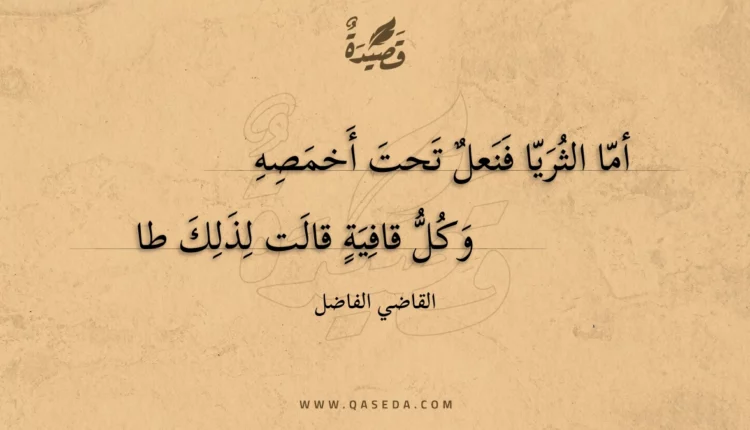 قَصِيْدَةٌ
أمّا الثُرَيّا فَنَعلٌ تَحتَ أَخمَصِهِ
وَكُلُّ قافِيَةٍ قالَت لِذَلِكَ طا
القاضي الفاضل
WWW.QASEDA.COM